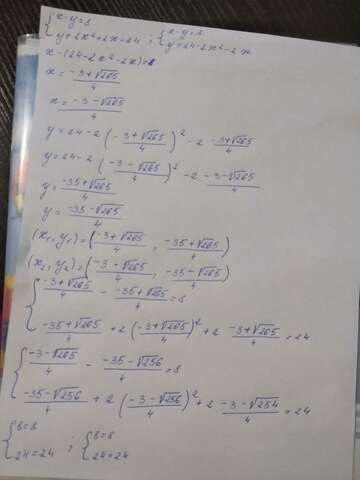 {x-y=8
y+2x²+2x=24 ; {x-y=8
y=24-2x²-2x
x-(24-2x²-2x)=8
x=(-3+√265)/4
x=(-3-√265)/4
y=24-2((-3+√265)/4)²-2 (-3+√265)/4
y=24-2((-3-√265)/4)²-2 (-3-√265)/4
y=(-35+√265)/4
y=(-35-√265)/4
(x₁,y₁)=((-3+√265)/4, (-35+√265)/4)
(x₂,y₂)=((-3-√265)/4, (-35-√265)/4)
{(-3+√265)/4 - (-35+√265)/4=8
(-35+√265)/4+2((-3+√265)/4)²+2 (-3+√265)/4=24
{(-3-√265)/4 - (-35-√256)/4=8
(-35-√256)/4+2((-3-√256)/4)²+2 (-3-√254)/4=24
{8=8
24=24 ; {8=8
24=24